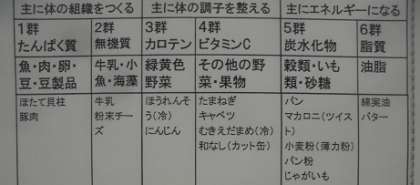 主に体の組織をつくる
主に体の調子を整える
主にエネルギーになる
1群
たんぱく質
2群
無機質
3群
カロテン
4群
ビタミンC
5群
炭水化物
6群
脂質
魚・肉・卵・
豆・豆製品
牛乳・小
魚・海藻
緑黄色
野菜
その他の野
菜・果物
穀類・いも
類・砂糖
油脂
ほたて貝柱
豚肉
牛乳
粉末チー
ズ
ほうれんそ
う(冷)
にんじん
たまねぎ
キャベツ
むきえだまめ(冷)
和なし(カット缶)
パン
マカロニ(ツイス
ト)
小麦粉(薄力粉)
パン粉
じゃがいも
綿実油
バター